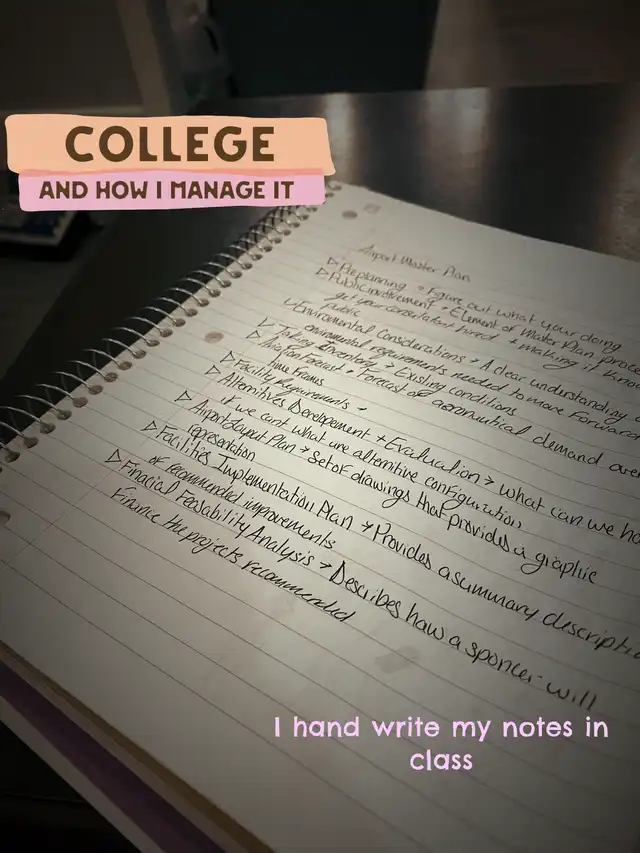 COLLEGE
AND HOW I MANAGE IT
Airport Master Plan
▷ Preplanning → Figure out what your doing
▷ Public involvement → Element of Master Plan process
get your consultant hired + making it known
public
Enviromental Considerations → A clear understanding
enviromental requirements needed to move forward
▷ Taking Inventory → Existing conditions
▷ Aviation Forecast → Forecast of aeronautical demand over
Time Frames
▷ Facility Requirements →
▷ Alternitives Developement + Evaluation → what can we
if we cant what are alternitive configuration
▷ Airport Layout Plan → Set of drawings that provides a graphic
representation
▷ Facilities Implementation Plan → Provides a summary
of recommended improvements
▷ Finacial Feasability Analysis → Describes how a sponcer will
Finance the projects recommended
I hand write my notes in
class